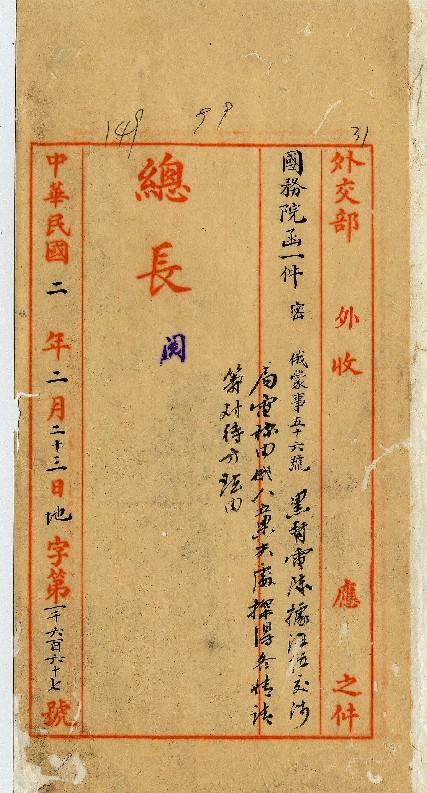 149
99
31
外交部 外收 應 之件
國務院函一件 密 俄蒙事五十六號 黑督電陳據江位交涉
局電稱由俄人 探得各情請
籌對待方法由
總長
閱
中華民國二年二月二十三日地字第一千六百六十七號